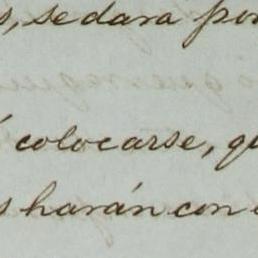 s, se dara por
colocarse, qu
s harán con